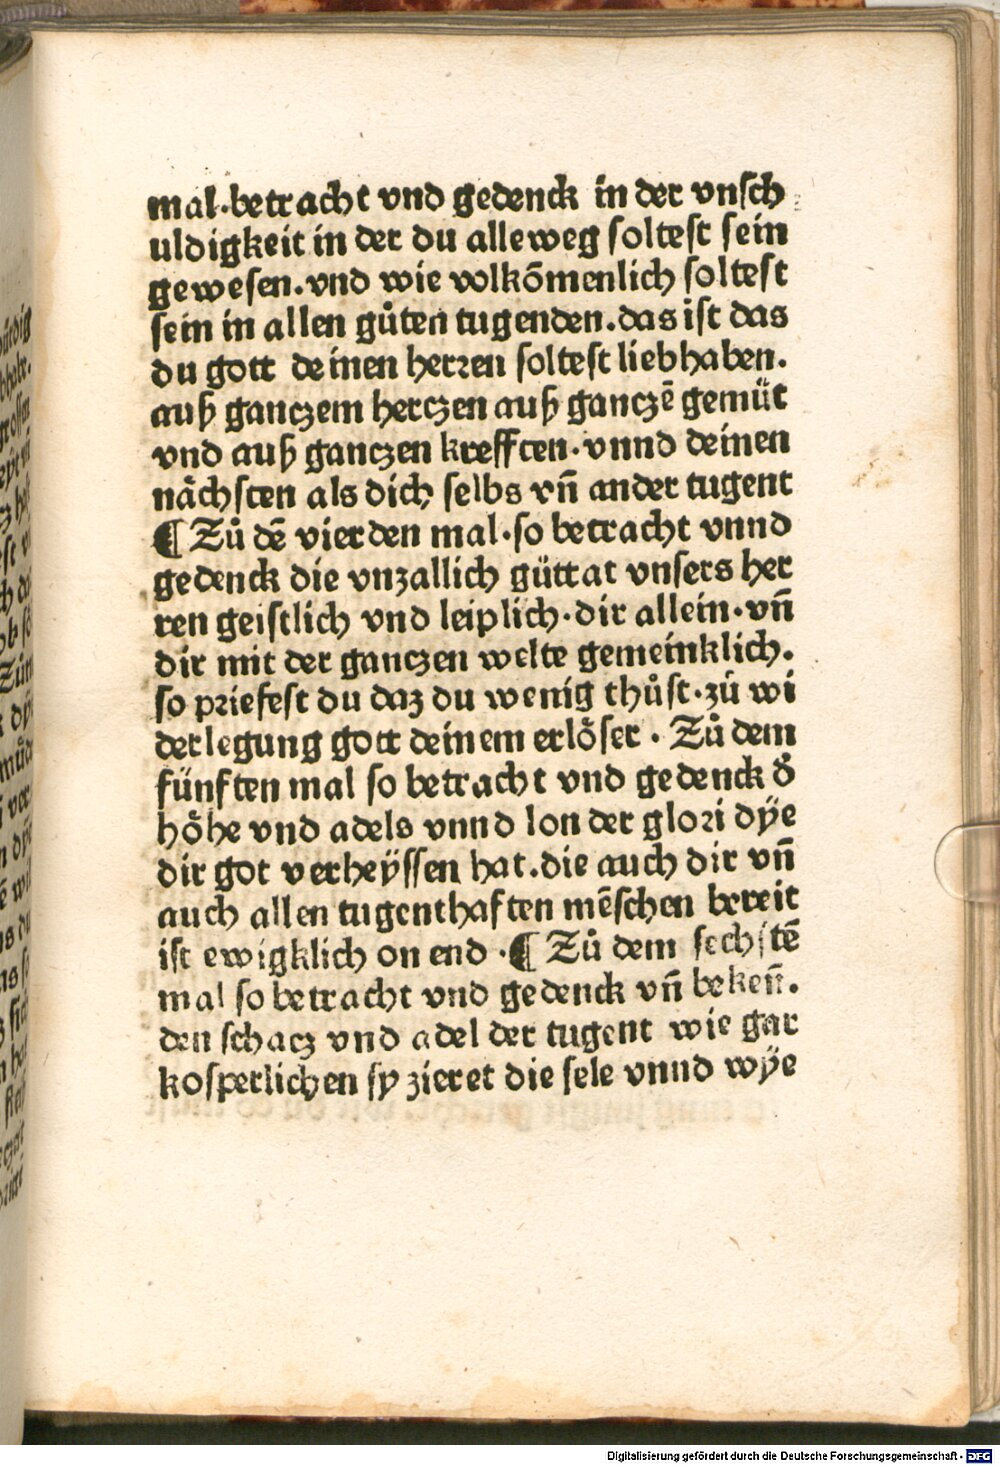 mal·betracht vnd gedenck in der vnsch
uldigkeit in der du alleweg soltest sein
gewesen.vnd wie volkōmenlich soltest
sein in allen gůten tugenden.das ist das
du gott deinen herren soltest liebhaben.
auß ganczem herczen auß ganczē gemüt
vnd auß ganczen krefften·vnnd deinen
nächsten als dich selbs vn̄ ander tugent
¶ Zů dē vierden mal·so betracht vnnd
gedenck die vnzallich güttat vnsers her
ren geistlich vnd leiplich·dir allein·vn̄
dir mit der ganczen welte gemeinklich.
so priefest du daz du wenig thůst·zů wi
derlegung gott deinem erlöser · Zů dem
fünften mal so betracht vnd gedenck d̕
höhe vnd adels vnnd lon der glori dÿe
dir got verheÿssen hat.die auch dir vn̄
auch allen tugenthaften mēschen bereit
ist ewigklich on end ·¶ Zů dem sechstē
mal so betracht vnd gedenck vn̄ beken̄.
den schacz vnd adel der tugent wie gar
kosperlichen sy zieret die sele vnnd wÿe
Digitalisierung gefördert durch die Deutsche Forschungsgemeinschaft - DFG